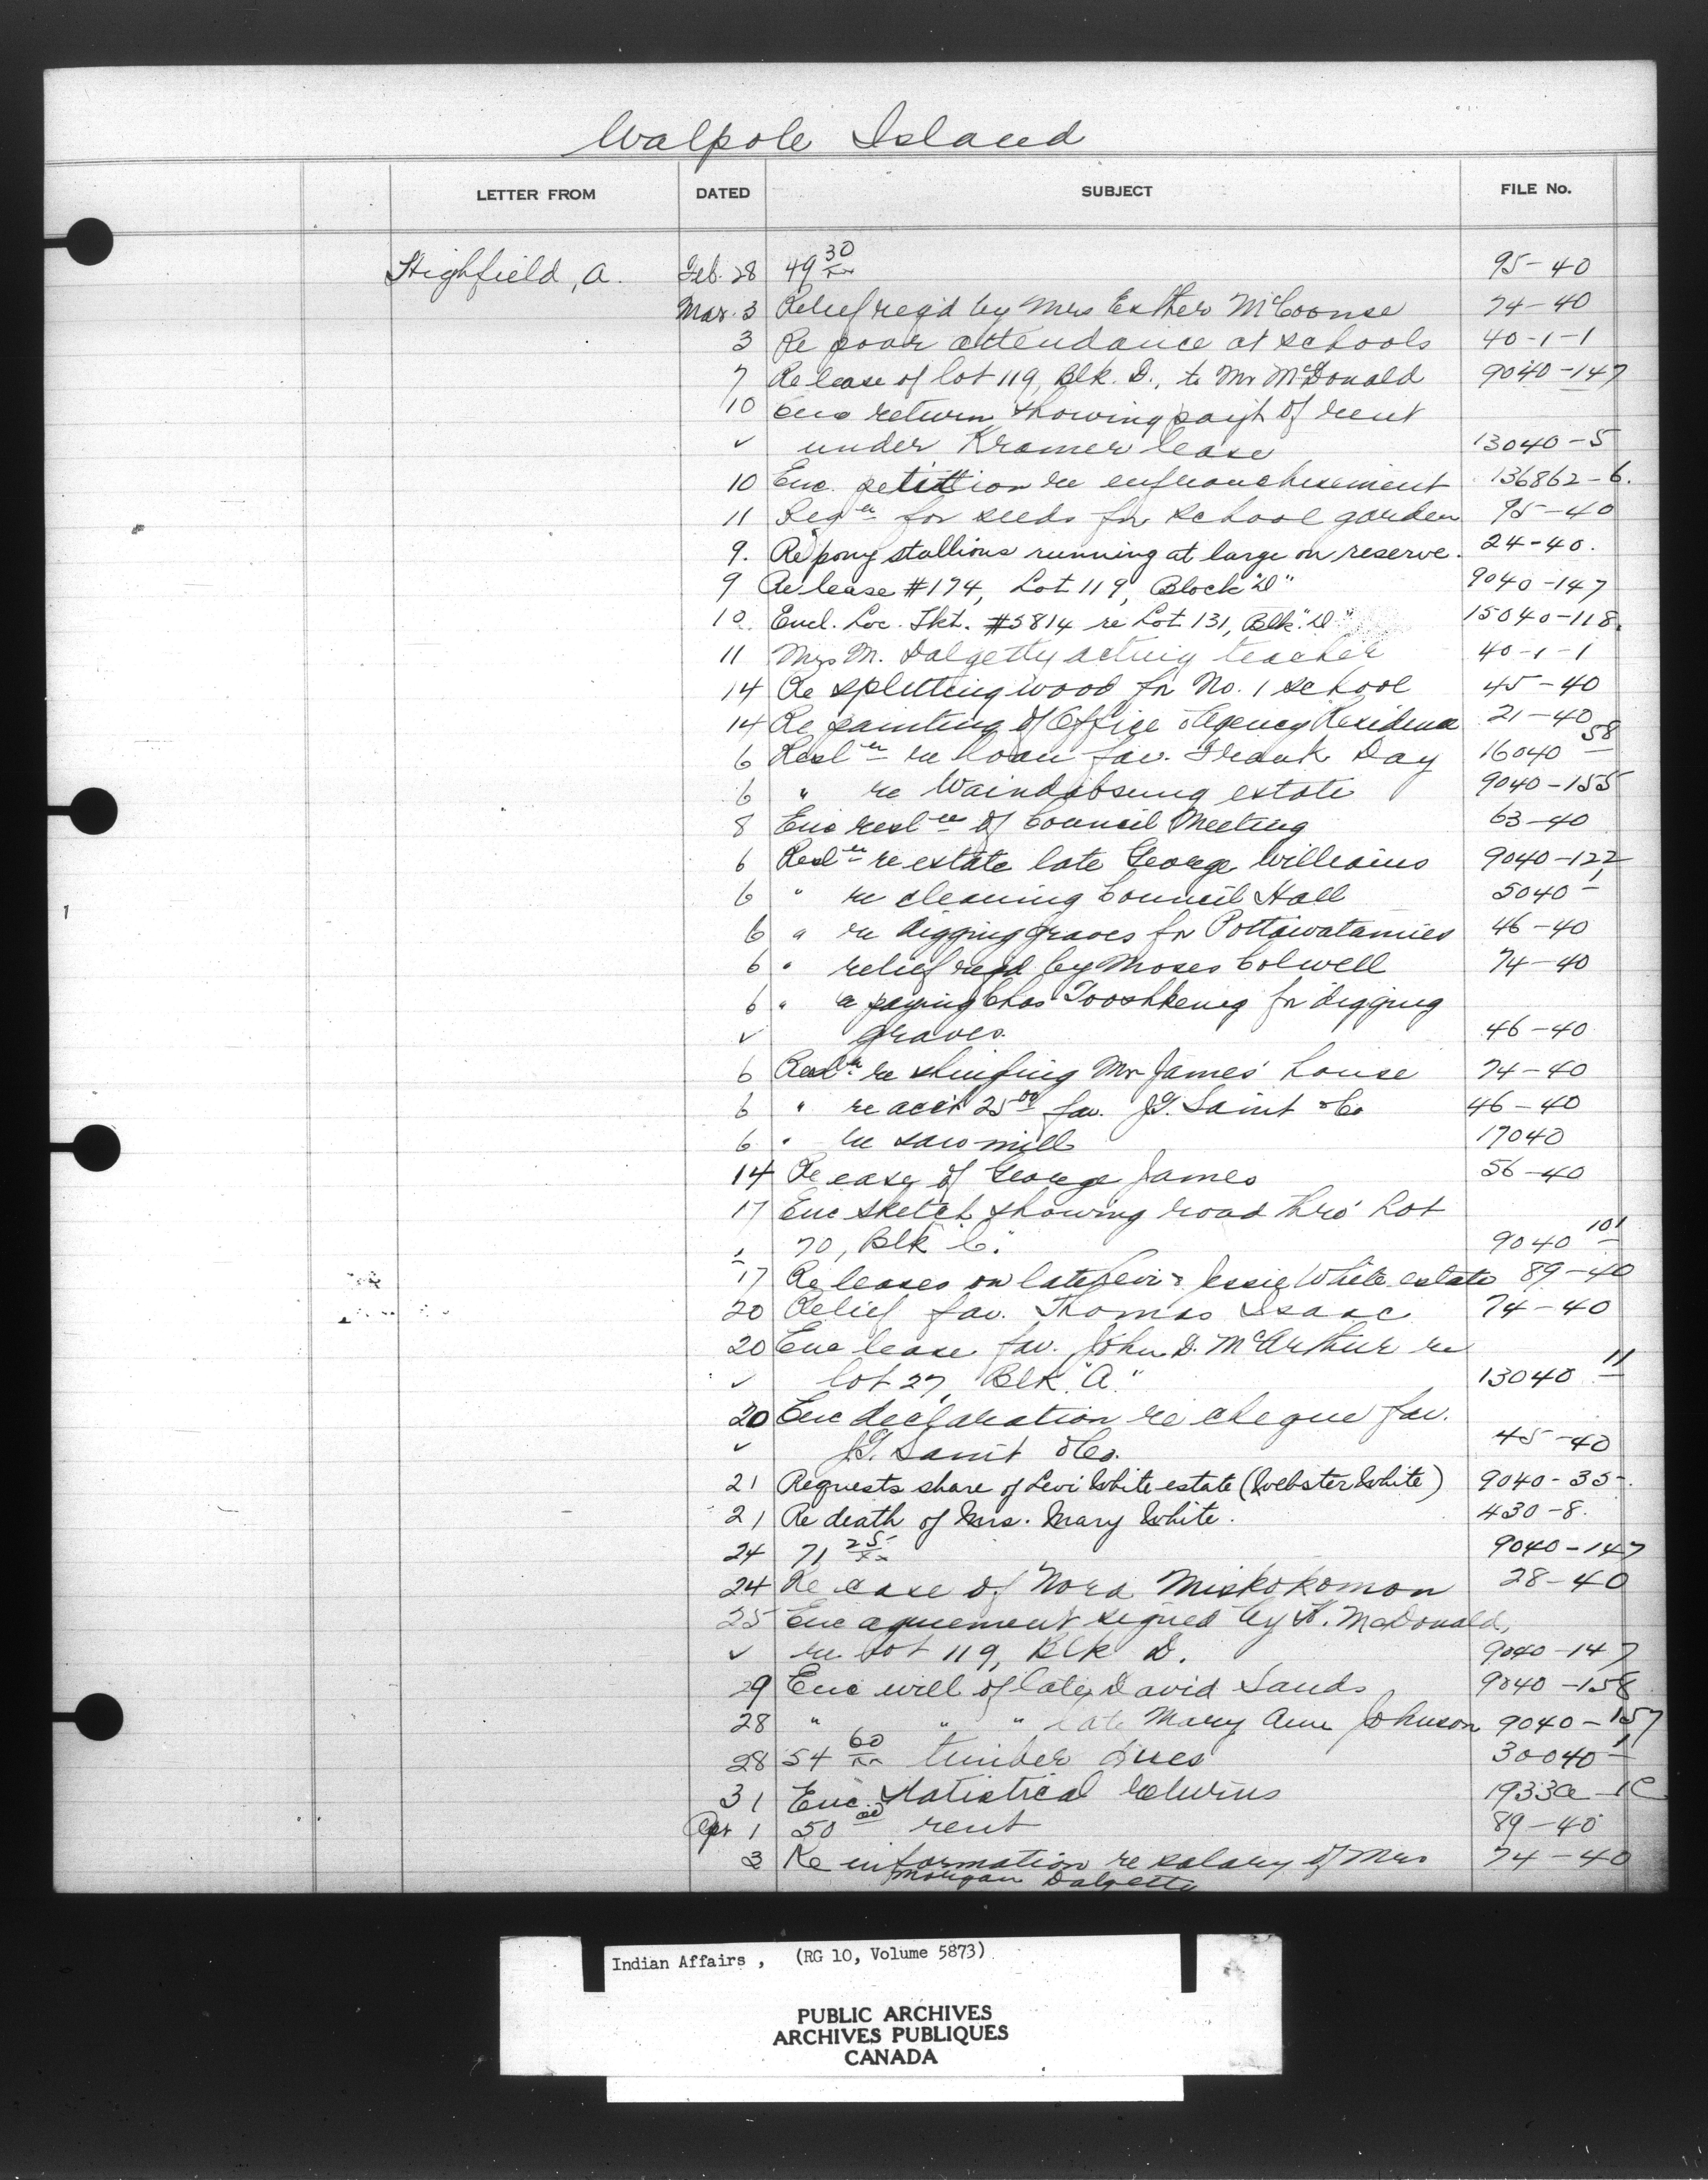 Walpole Island
LETTER FROM DATED SUBJECT FILE No.
Highfield, A. Feb. 28 49 30/xx 95-40
Mar. 3 Relief req'd by Mrs Esther McCoonse 74-40
3 Re poor attendance at schools 40-1-1
7 Re lease of lot 119, Blk. D., to Mr McDonald 9040-147
10 Enc return showing paym't of rent
✓ under Kramer lease 13040-5
10 Enc. petition re enfranchisement 136862-6.
11 Reqn for seeds for school garden 95-40
9. Re pony stallions running at large on reserve. 24-40.
9 Re lease #174, Lot 119, Block "D" 9040-147
10. Encl. Loc. Tkt. #5814 re Lot 131, Blk. "D" 15040-118.
11 Mrs M. Dalgetty acting teacher 40-1-1
14 Re splitting wood for No. 1 school 45-40
14 Re painting of Office & Agency Residence 21-40
6 Resln re loan fav. Frank Day 16040-58
6 " re Waindabsung estate 9040-155
8 Enc resln of Council Meeting 63-40
6 Resln re estate late George Williams 9040-122
6 " re cleaning Council Hall 5040-1
6 " re digging graves for Pottawatamies 46-40
6 " relief req'd by Moses Colwell 74-40
6 " re paying Chas Tooshkenig for digging
✓ graves. 46-40
6 Resln re shingling Mr James' house 74-40
6 " re acc't 25 00 fav. J.G. Saint & Co 46-40
6 " re saw mill 17040
14 Re case of George James 56-40
17 Enc sketch showing road thro' Lot
✓ 70, Blk "C." 9040-101
17 Re leases on late Levi & Jessie White estate 89-40
20 Relief fav. Thomas Isaac 74-40
20 Enc lease fav. John D. McArthur re
✓ lot 27, Blk "A." 13040-11
20 Enc declaration re cheque fav.
✓ J.G. Saint & Co. 45-40
21 Requests share of Levi White estate (Webster White) 9040-35-.
21 Re death of Mrs. Mary White. 430-8.
24 71 25/xx 9040-147
24 Re case of Nora Miskokomon 28-40
25 Enc agreement signed by H. McDonald,
✓ re Lot 119, Blk D. 9040-147
29 Enc will of late David Sands 9040-158
28 " " " late Mary Ann Johnson 9040-157
28 54 60/xx timber dues 30040-1
31 Enc. Statistical Returns 1933a-1C
Apr 1 50 00 rent 89-40
3 Re information re salary of Mrs 74-40
Morgan Dalgetty
Indian Affairs, (RG 10, Volume 5873)
PUBLIC ARCHIVES
ARCHIVES PUBLIQUES
CANADA